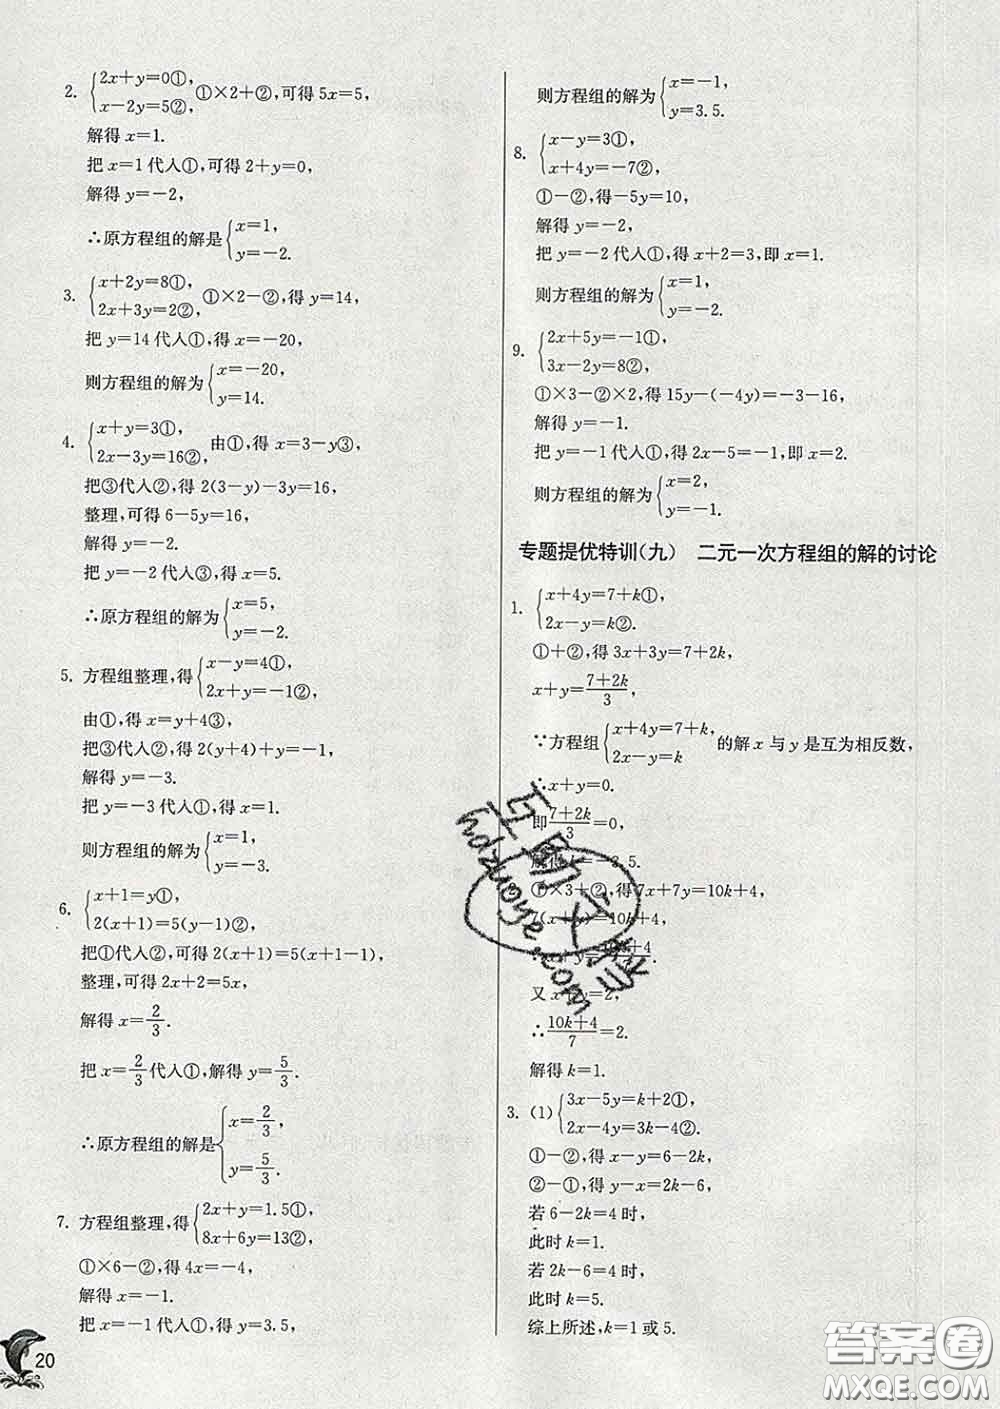 2. {2x+y=0①, x-2y=5②, ①×2+②,可得 5x=5,
解得 x=1.
把 x=1 代入①,可得 2+y=0,
解得 y=-2,
∴原方程组的解是{x=1, y=-2.
3. {x+2y=8①, 2x+3y=2②, ①×2-②,得 y=14,
把 y=14 代入①,得 x=-20,
则方程组的解为{x=-20, y=14.
4. {x+y=3①, 2x-3y=16②, 由①,得 x=3-y③,
把③代入②,得 2(3-y)-3y=16,
整理,可得 6-5y=16,
解得 y=-2.
把 y=-2 代入③,得 x=5.
∴原方程组的解为{x=5, y=-2.
5. 方程组整理,得{x-y=4①, 2x+y=-1②,
由①,得 x=y+4③,
把③代入②,得 2(y+4)+y=-1,
解得 y=-3.
把 y=-3 代入①,得 x=1.
则方程组的解为{x=1, y=-3.
6. {x+1=y①, 2(x+1)=5(y-1)②,
把①代入②,可得 2(x+1)=5(x+1-1),
整理,可得 2x+2=5x,
解得 x=2/3.
把 x=2/3 代入①,解得 y=5/3.
∴原方程组的解是{x=2/3, y=5/3.
7. 方程组整理,得{2x+y=1.5①, 8x+6y=13②,
①×6-②,得 4x=-4,
解得 x=-1.
把 x=-1 代入①,得 y=3.5,
20
则方程组的解为{x=-1, y=3.5.
8. {x-y=3①, x+4y=-7②,
①-②,得-5y=10,
解得 y=-2.
把 y=-2 代入①,得 x+2=3,即 x=1.
则方程组的解为{x=1, y=-2.
9. {2x+5y=-1①, 3x-2y=8②,
①×3-②×2,得 15y-(-4y)=-3-16,
解得 y=-1.
把 y=-1 代入①,得 2x-5=-1,即 x=2.
则方程组的解为{x=2, y=-1.
专题提优特训(九) 二元一次方程组的解的讨论
1. {x+4y=7+k①, 2x-y=k②.
①+②,得 3x+3y=7+2k,
x+y=(7+2k)/3,
∵方程组{x+4y=7+k, 2x-y=k 的解 x 与 y 是互为相反数,
∴x+y=0.
即(7+2k)/3=0,
解得 k=-3.5.
2. ①×3+②,得 7x+7y=10k+4,
7(x+y)=10k+4,
∴x+y=(10k+4)/7.
又 x+y=2,
∴(10k+4)/7=2.
解得 k=1.
3. (1){3x-5y=k+2①, 2x-4y=3k-4②.
①-②,得 x-y=6-2k,
②-①,得 y-x=2k-6,
若 6-2k=4 时,
此时 k=1.
若 2k-6=4 时,
此时 k=5.
综上所述,k=1 或 5.
hdzuoye.com
答案圈
MXQE.COM